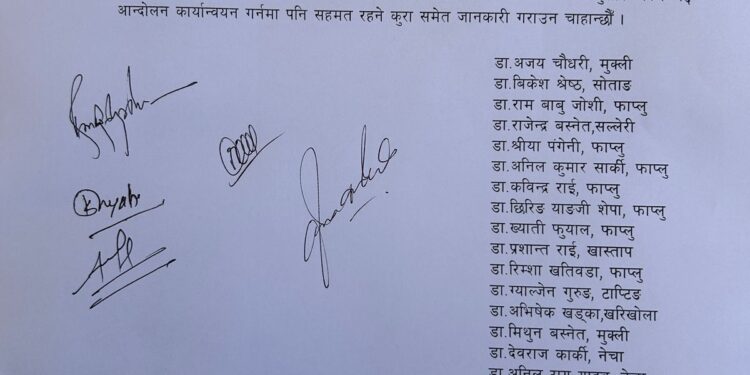 आन्दोलन कार्यान्वयन गर्नमा पनि सहमत रहने कुरा समेत जानकारी गराउन चाहान्छौँ ।
डा.अजय चौधरी, मुक्ली
डा.बिकेश श्रेष्ठ, सोताङ
डा.राम बाबु जोशी, फाप्लु
डा.राजेन्द्र बस्नेत,सल्लेरी
डा.श्रीया पंगेनी, फाप्लु
डा.अनिल कुमार सार्की, फाप्लु
डा.कविन्द्र राई, फाप्लु
डा.छिरिङ याङजी शेपा, फाप्लु
डा.ख्याती फुयाल, फाप्लु
डा.प्रशान्त राई, खास्ताप
डा.रिम्शा खतिवडा, फाप्लु
डा.ग्याल्जेन गुरुङ, टाप्टिङ
डा.अभिषेक खड्का,खरिखोला
डा.मिथुन बस्नेत, मुक्ली
डा.देवराज कार्की, नेचा